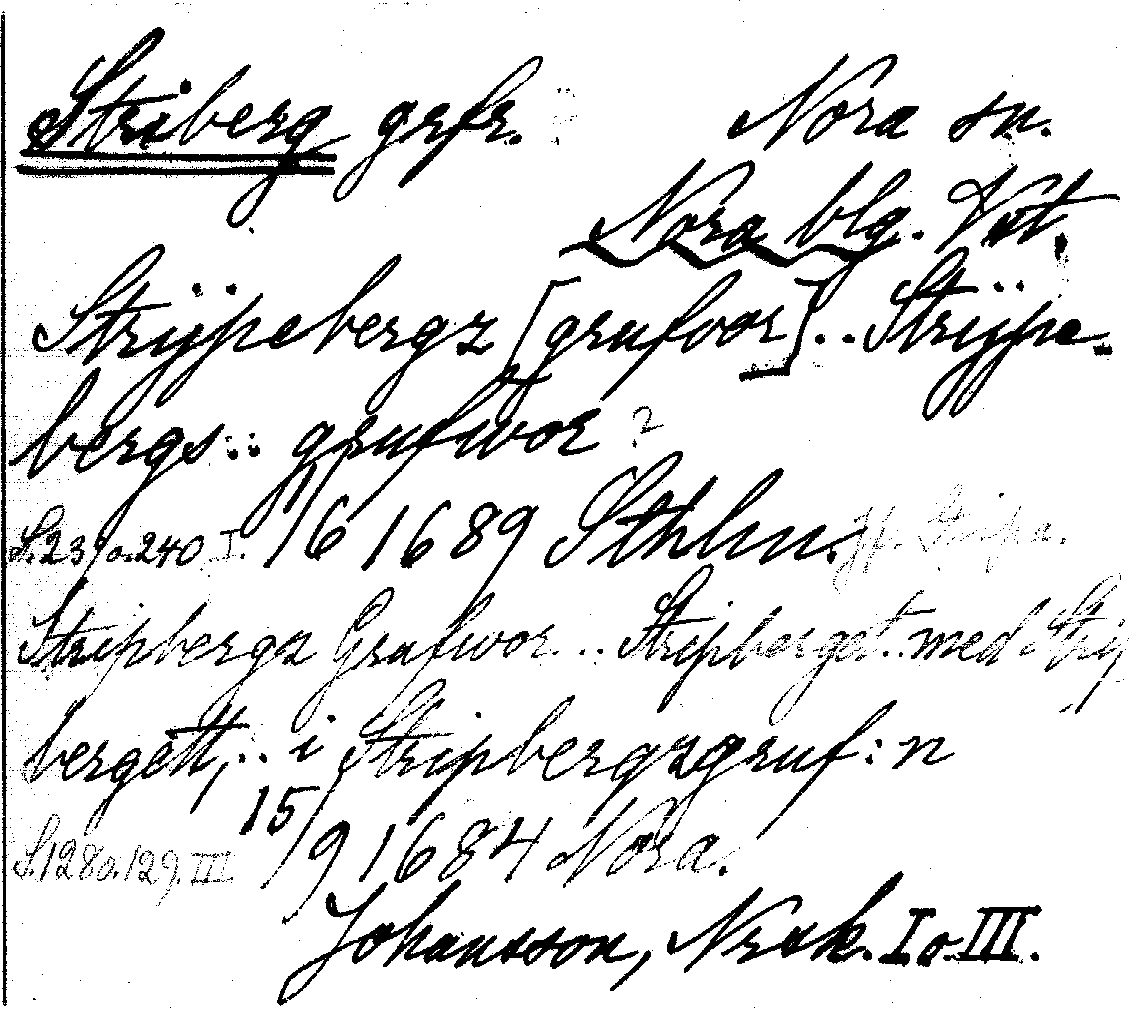 Striberg grfr. Nora sn.
Nora blg. Vstm.
Strÿpebergz [grufvor] .. Strÿpe-
bergs .. grufwor ?
S. 239 o. 240 I. 11/6 1689 Sthlm. jfr. Stripa.
Stripbergz Grufwor .. Stripberget .. med Strip
bergett, .. i Stripbergzgruf:n
S. 128 o. 129. III 15/9 1684 Nora.
Johansson, Nrak. I o. III.